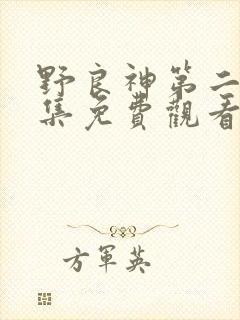 野良神第二
集免費觀看
方軍英